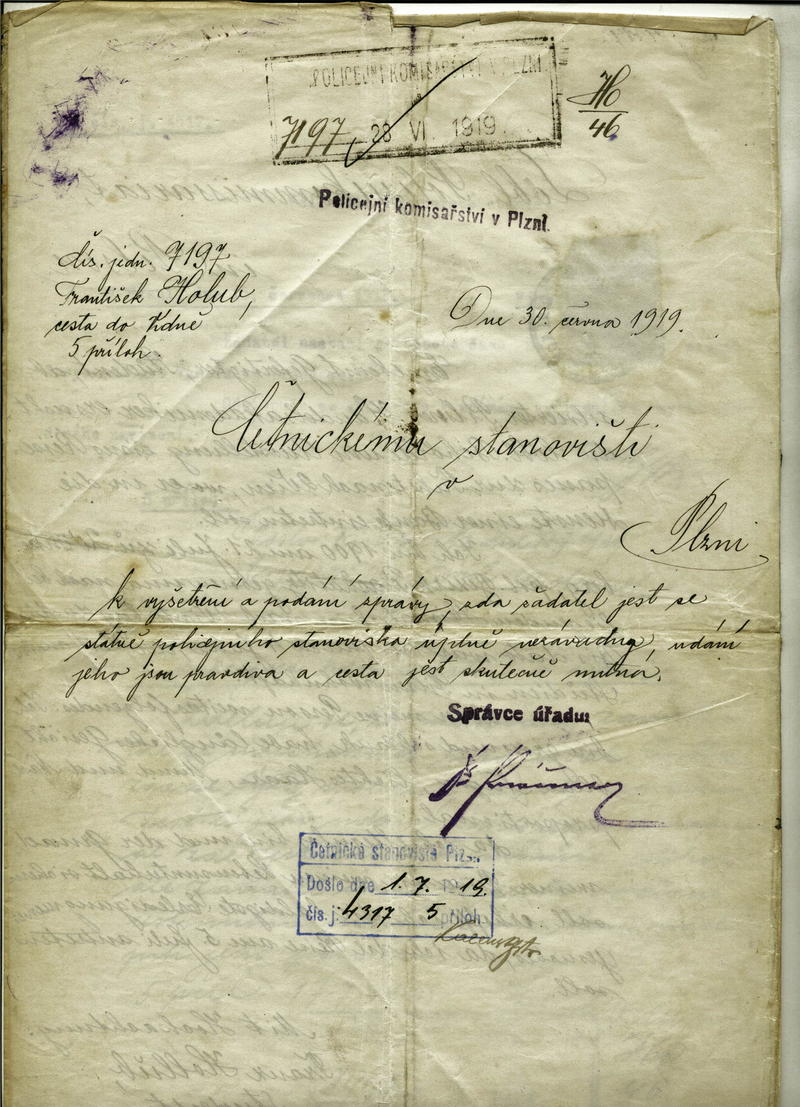 POLICEJNÍ KOMISAŘSTVÍ V PLZNI
7197 28 VI 1919
H
46
Policejní komisařství v Plzni.
čís. jedn. 7197
František Holub,
cesta do Kdně
5 příloh.
Dne 30. června 1919.
Četnickému stanovišti
v
Plzni
k vyšetření a podání zprávy, zda žadatel jest se
státně policejního stanoviska úplně nezávadný, udání
jeho jsou pravdiva a cesta jest skutečně nutná.
Správce úřadu:
Četnické stanoviště Plzeň
Došlo dne 1. 7. 1919.
čís. j. 4317 5 příloh